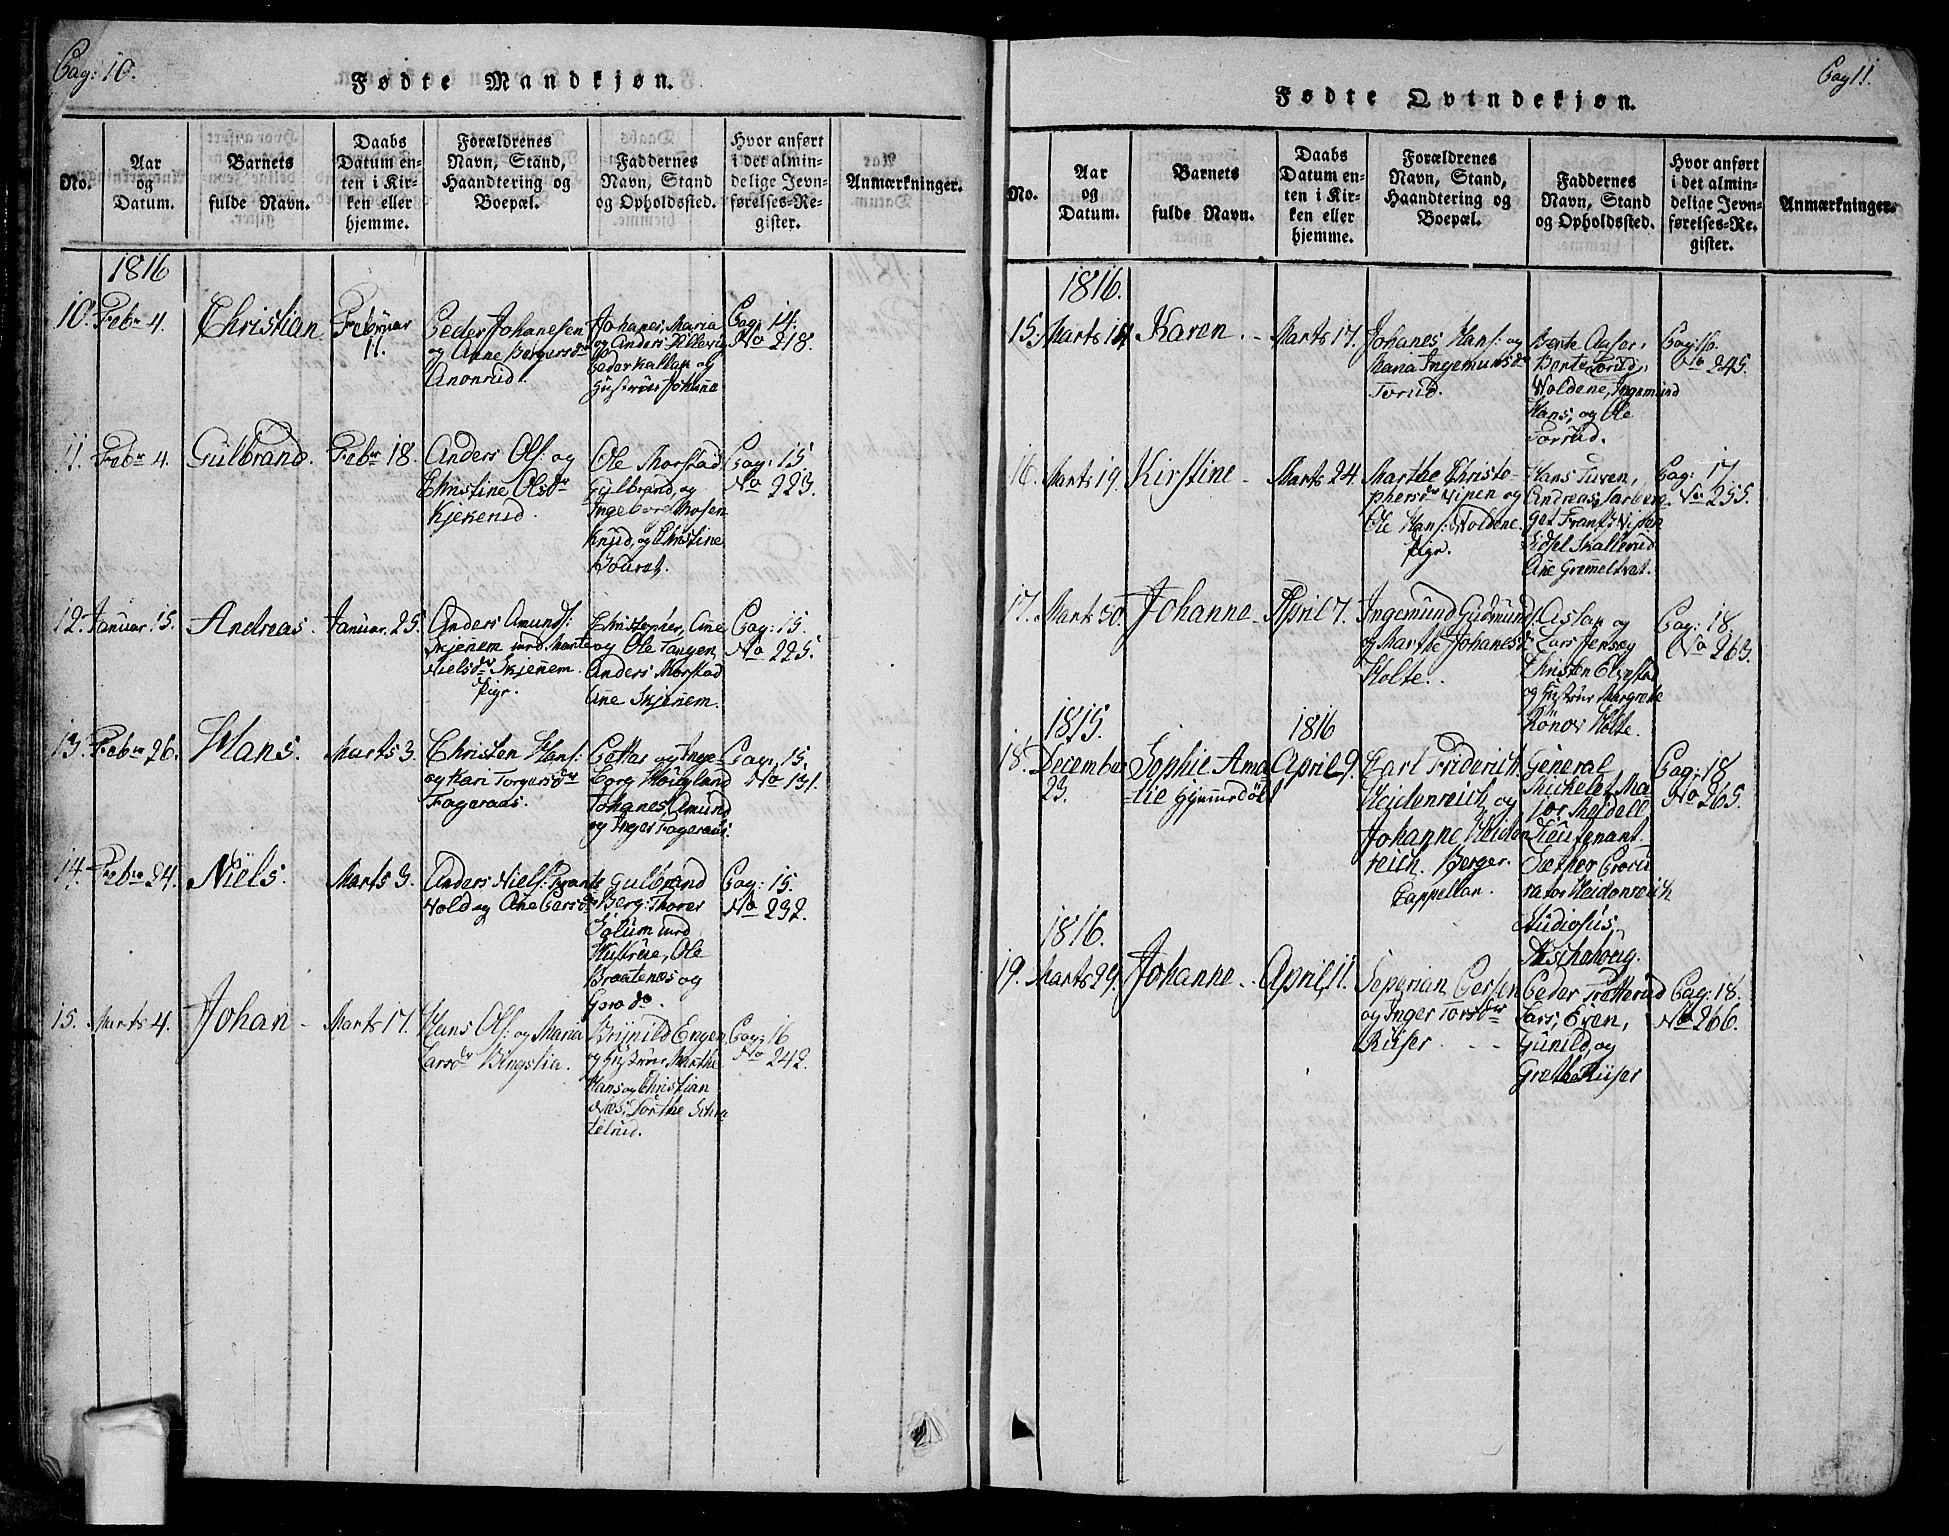 Pag: 10.
Fødte Mandkjøn.
No.
Aar
og
Datum.
Barnets
fulde Navn.
Daabs
Datum en-
ten i Kir-
ken eller
hjemme.
Forældrenes
Navn, Stand,
Haandtering og
Boepæl.
Faddernes
Navn, Stand
og Opholdssted.
Hvor anført
i det almin-
delige Jevn-
førelses-Re-
gister.
Anmærkninger.
1816
10. Febr 4.
Christian
Februar
11.
Peder Johanesen
og Anne Bergersdr
Anonrud.
Johanes, Maria
og Anders
Peder Kallak og
Hustrue Johane
Pag: 14.
No 218.
11. Febr 4.
Gulbrand.
Febr 18.
Anders Ols: og
Christine Olsdr
Kjekerud.
Ole Morstad
Gulbrand, og
Ingebord Rosen
Knud, og Christine
Pag: 15
No 223.
12. Januar. 15.
Andreas.
Januar. 25.
Anders Amunds:
Skjenem med Marte
Nielsdr Skjenem.
Pige.
Christopher, Ane
og Ole Tangen
Anders Morstad
Ane Skjenem.
Pag: 15.
No 225.
13. Febr 26.
Hans.
Marts 3.
Christen Hans:
og Kari Torgersdr
Fageraas.
og Inge-
borg Hougland
Johanes, Amund
og Inger Fageraas.
Pag: 15.
No 131.
14. Febr 24.
Niels.
Marts 3.
Anders Niels:
Vold og Ane
Gulbrand
Berg: Thorer
Solum med
Hustrue, Ole
Braatenes og
Goro do
Pag: 15.
No 232.
15. Marts 4.
Johan -
Marts 17.
Hans Ols: og Maria
Larsdr Bingslia.
Brynild Engen
og Hustrue Marthe
Hans og Christian
Næs, Dorthe
telrud.
Pag: 16
No 242.
Pag 11.
Fødte Qvindekjøn.
No.
Aar
og
Datum.
Barnets
fulde Navn.
Daabs
Datum en-
ten i Kir-
ken eller
hjemme.
Forældrenes
Navn, Stand,
Haandtering og
Boepæl.
Faddernes
Navn, Stand
og Opholdssted.
Hvor anført
i det almin-
delige Jevn-
førelses-Re-
gister.
Anmærkninger.
1816.
15. Marts 14
Karen. -
Marts 17.
Johanes Hans: og
Maria Ingemunsdr
Torud.
Berte
Berte Torud,
Voldene, Ingemund
Hans, og Ole
Torrud.
Pag: 16.
No 245.
16. Marts 19.
Kirstine -
Marts 24.
Marthe Christo-
phersdr Vipen og
Ole Hans: Voldene.
Pige.
Hans Tuven,
Andreas
Vipen
Eidsel Skallerud
Ane Gremeltvet.
Pag: 17.
No 255.
17. Marts 30.
Johanne -
April 7.
Ingemund Gudmunds
og Marthe Johanesdr
Holte.
Aslak og
Lars Jensæg
Christen
og Hustrue Margrethe
Rønov Holte.
Pag: 18
No 263.
1815.
18. December
23.
Sophie Ama-
lie Gjennedøbt
1816
April 9.
Carl Friderich
Heidenreich og
Johanne Heiden
reich. Berger.
Cappellan.
General
Michelet Ma-
jor Meidell
Lieutenant
Sæther Procu
rator Heidenreich
Studiosus
Aschehoug.
Pag: 18
No 265.
1816.
19. Marts 29.
Johanne -
April 11.
Seperian Persen
og Inger Torsdr
Riiser
Peder Pretterud
Lars, Even,
Gunild, og
Grethe Riiser
Pag: 18.
No 266.